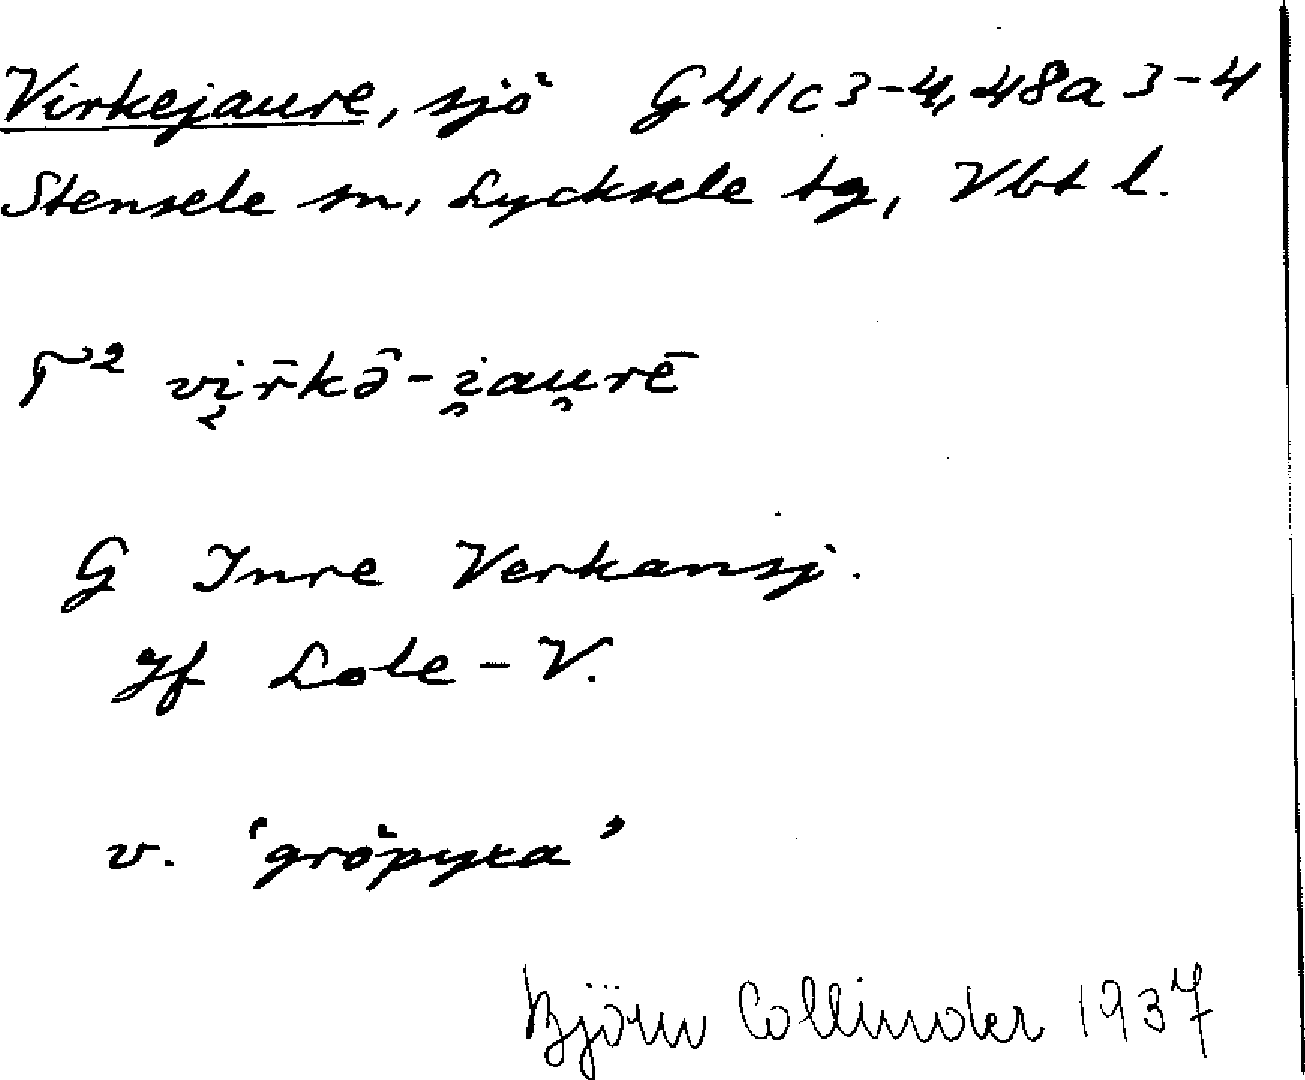 Virkejaure, sjö G 41c3-4, 48a 3-4
Stensele sn, Lycksele tg, Vbt l.
G Inre Verkansj.
Jf Lole-V.
v. 'gröpyxa'
Björn Collinder 1937